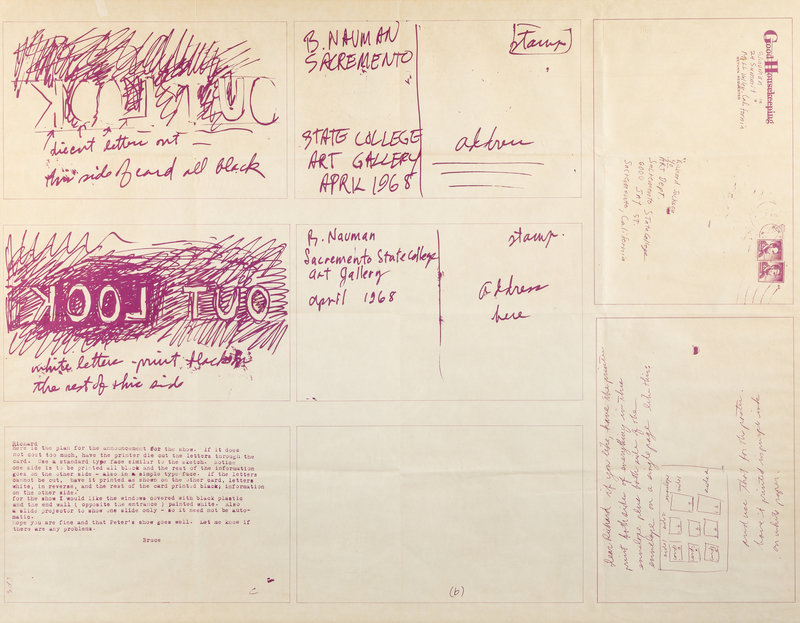 KOOL TUO
diecut letters out —
this side of card all black
B. NAUMAN
SACREMENTO
STATE COLLEGE
ART GALLERY
APRIL 1968
stamp
address
KOOL TUO
white letters - print black on
the rest of this side
B. Nauman
Sacremento State College
Art Gallery
april 1968
stamp.
address
here
Richard
Here is the plan for the announcement for the show. If it does
not cost too much, have the printer die cut the letters through the
card. Use a standard type face similar to the sketch. Notice
one side is to be printed all black and the rest of the information
goes on the other side - also in a simple type face. If the letters
cannot be cut, have it printed as shown on the other card, letters
white, in reverse, and the rest of the card printed black; information
on the other side.
for the show I would like the windows covered with black plastic
and the end wall ( opposite the entrance ) painted white. Also
a slide projector to show one slide only - so it need not be auto-
matic.
Hope you are fine and that Peter's show goes well. Let me know if
there are any problems.
Bruce
(b)
Good Housekeeping
Mill Valley California
Art Dept.
Sacramento State College
6000 Jay St.
Sacramento California
Dear Richard - if you like, have the printer
print both sides of everything in this
envelope plus both sides of the
envelope on a single page like this
and use this for the poster.
have it printed in purple ink
on white paper.